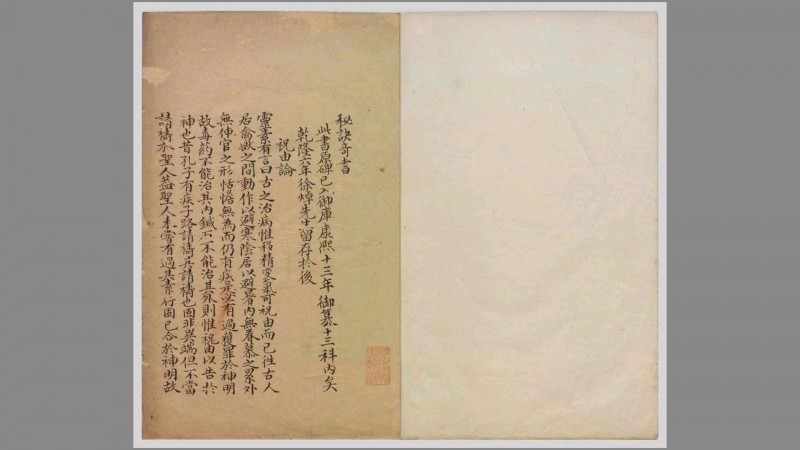 秘訣奇書
此書原碑已入御庫康熙十三年御纂十三科內矣
乾隆六年徐焯先生留存於後
祝由論
靈素有言曰古之治病惟移精变氣可祝由而已徃古人
居禽獸之間動作以避寒陰居以避暑內無眷慕之累外
無伸官之形恬憺無為而仍有疾是必有過獲罪於神明
故毒葯不能治其內鍼石不能治其外則惟祝由以告於
神也昔孔子有疾子路請禱其請禱也固非異端但不當
請禱於聖人葢聖人未嘗有過其素行固已合於神明故